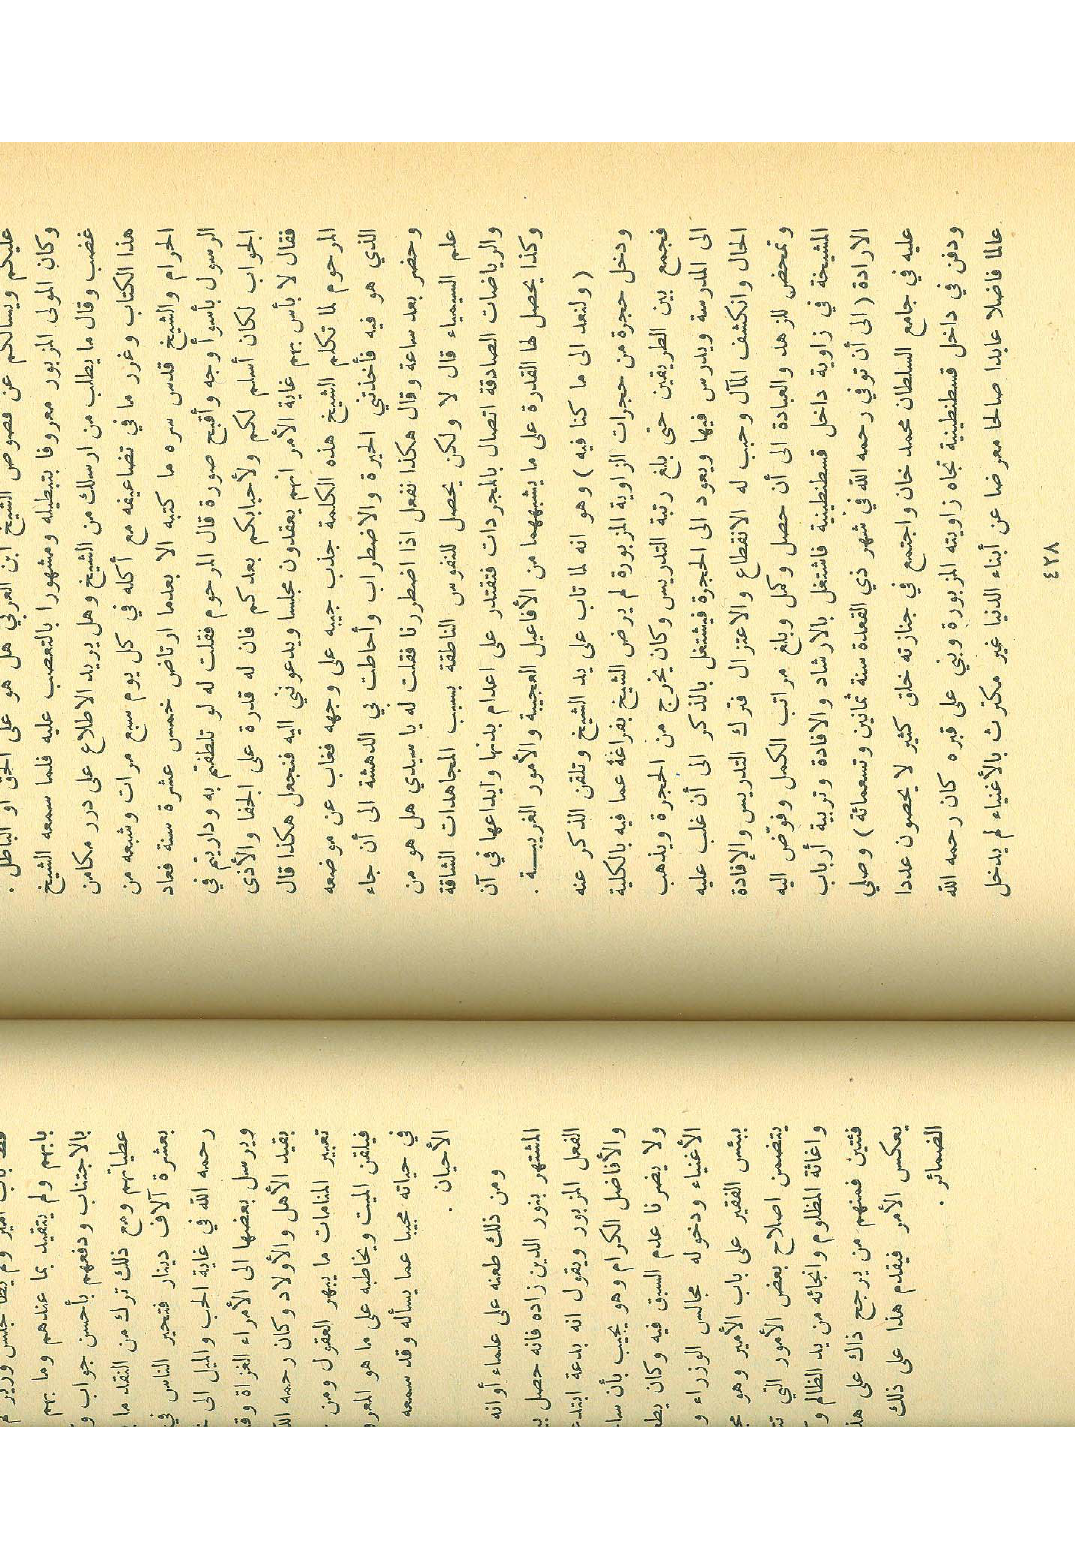 عليكم ويسألكم عن فصوص الشيخ ابن العربي هل هو على الحق او الباطل .
وكان المولى المزبور معروفا بتبطيله ومشهورا بالتعصب عليه فلما سمعه الشيخ
غضب وقال ما يطلب من ارسلك من الشيخ وهل يريد الاطلاع على درر مكامن
هذا الكتاب وغرر ما في تضاعيفه مع أكله في كل يوم سبع مرات وشبعه من
الحرام والشيخ قدس سره ما كتبه الا بعدما ارتاض خمس عشرة سنة فعاد
الرسول بأسوأ وجه وأقبح صورة قال المرحوم فقلت له لو تلطفتم به وداريتم في
الجواب لكان أسلم لكم ولأحبابكم بعدكم فان له قدرة على الجفا والأذى
فقال لا بأس بهم غاية الأمر انهم يعقدون مجلسا ويدعوني اليه فنجعل هكذا قال
المرحوم لما تكلم الشيخ هذه الكلمة جذب جيبه على وجهه فغاب عن موضعه
الذي هو فيه فأخذتني الحيرة والاضطراب وأحاطت بي الدهشة الى أن جاء
وحضر بعد ساعة وقال هكذا نفعل اذا اضطررنا فقلت له يا سيدي هل هو من
علم السيمياء قال لا ولكن يحصل للنفوس الناطقة بسبب المجاهدات الشاقة
والرياضات الصادقة اتصال بالمجردات فتقتدر على اعدام بدنها وايداعها في آن
وكذا يحصل لها القدرة على ما يشبههما من الأفاعيل العجيبة والأمور الغريبة .
( ولنعد الى ما كنا فيه ) وهو انه لما تاب على يد الشيخ وتلقن الذكر عنه
ودخل حجرة من حجرات الزاوية المزبورة لم يرض الشيخ بفراغه عما فيه بالكلية
فجمع بين الطريقين حتى بلغ رتبة التدريس وكان يخرج من الحجرة ويذهب
الى المدرسة ويدرس فيها ويعود الى الحجرة فيشتغل بالذكر الى أن غلب عليه
الحال وانكشف المآل وحبب له الانقطاع والاعتزال فترك التدريس والإفادة
وتمحض للزهد والعبادة الى أن حصل وكمل وبلغ مراتب الكمل وفوّض اليه
المشيخة في زاوية داخل قسطنطينية فاشتغل بالارشاد والافادة وتربية أرباب
الارادة ( الى أن توفي رحمه الله في شهر ذي القعدة سنة ثمانين وتسعمائة ) وصلي
عليه في جامع السلطان محمد خان واجتمع في جنازته خلق كثير لا يحصون عددا
ودفن في داخل قسطنطينية تجاه زاويته المزبورة وبني على قبره كان رحمه الله
عالما فاضلا عابدا صالحا معرضا عن أبناء الدنيا غير مكترث بالأغنياء لم يدخل
٤٢٨
قط باب امير ولم يطأ مجلس وزير
بابهم ولم يتقيد بما عندهم وما بهم
بالاجتناب ودفعهم بأحسن جواب و
عطياتهم ومع ذلك ترك من النقد ما
بعشرة آلاف دينار فتحير الناس في
رحمه الله في غاية الحب والميل الى
ويرسل بعضها الى الأمراء الغزاة وق
بقيد الأهل والأولاد وكان رحمه الل
تعبير المنامات ما يبهر العقول ومن
فيلقن الميت ويخاطبه على ما هو المعرو
في حياته مجيبا عما يسأله وقد سمعه
الأحيان .
ومن ذلك طعنه على علماء أوانه
المشتهر بنور الدين زاده فانه حصل ب
الفعل المزبور ويقول انه بدعة ابتدع
والأفاضل الكرام وهو يجيب بأن سا
ولا يضرنا عدم السبق فيه وكان يط
الأغنياء ودخوله مجالس الوزراء و
ببئس الفقير على باب الأمير وهو
يتضمن اصلاح بعض الأمور التي
واغاثة المظلوم وانجائه من يد الظالم و
فتين فمنهم من يرجح ذاك على هذ
يعكس الأمر فيقدم هذا على ذلك
الضمائر .